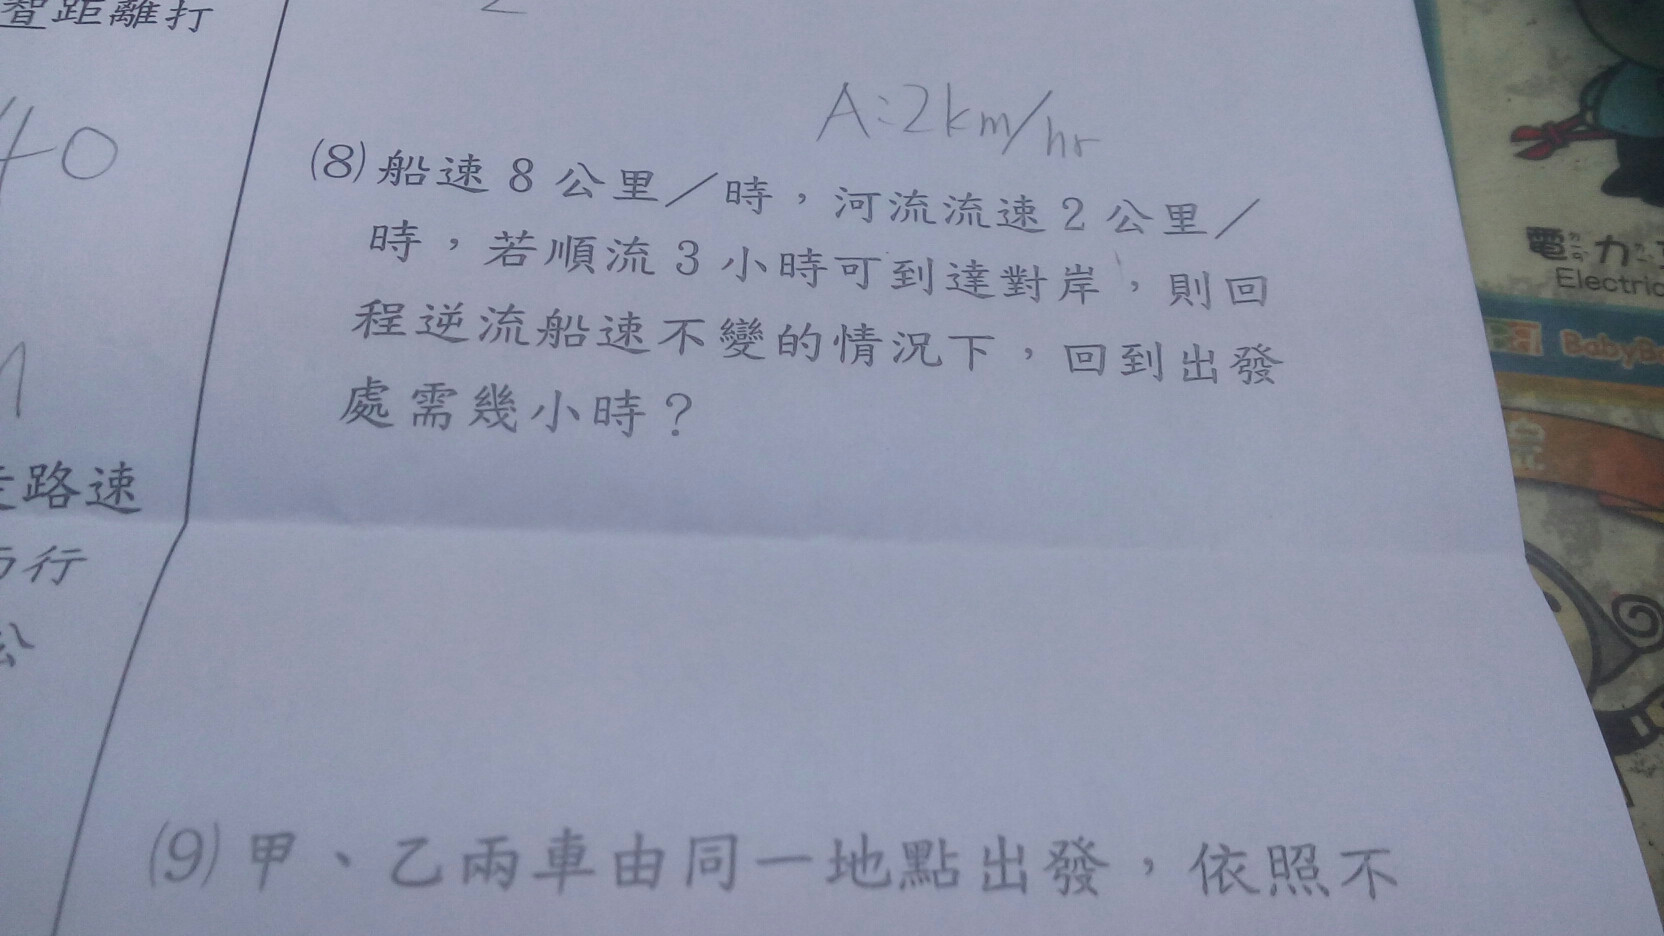 距離打
40
A:2km/hr
(8)船速8公里／時，河流流速2公里／
時，若順流3小時可到達對岸，則回
程逆流船速不變的情況下，回到出發
處需幾小時？
路速
行
(9)甲、乙兩車由同一地點出發，依照不
電力
Electric
BabyBo